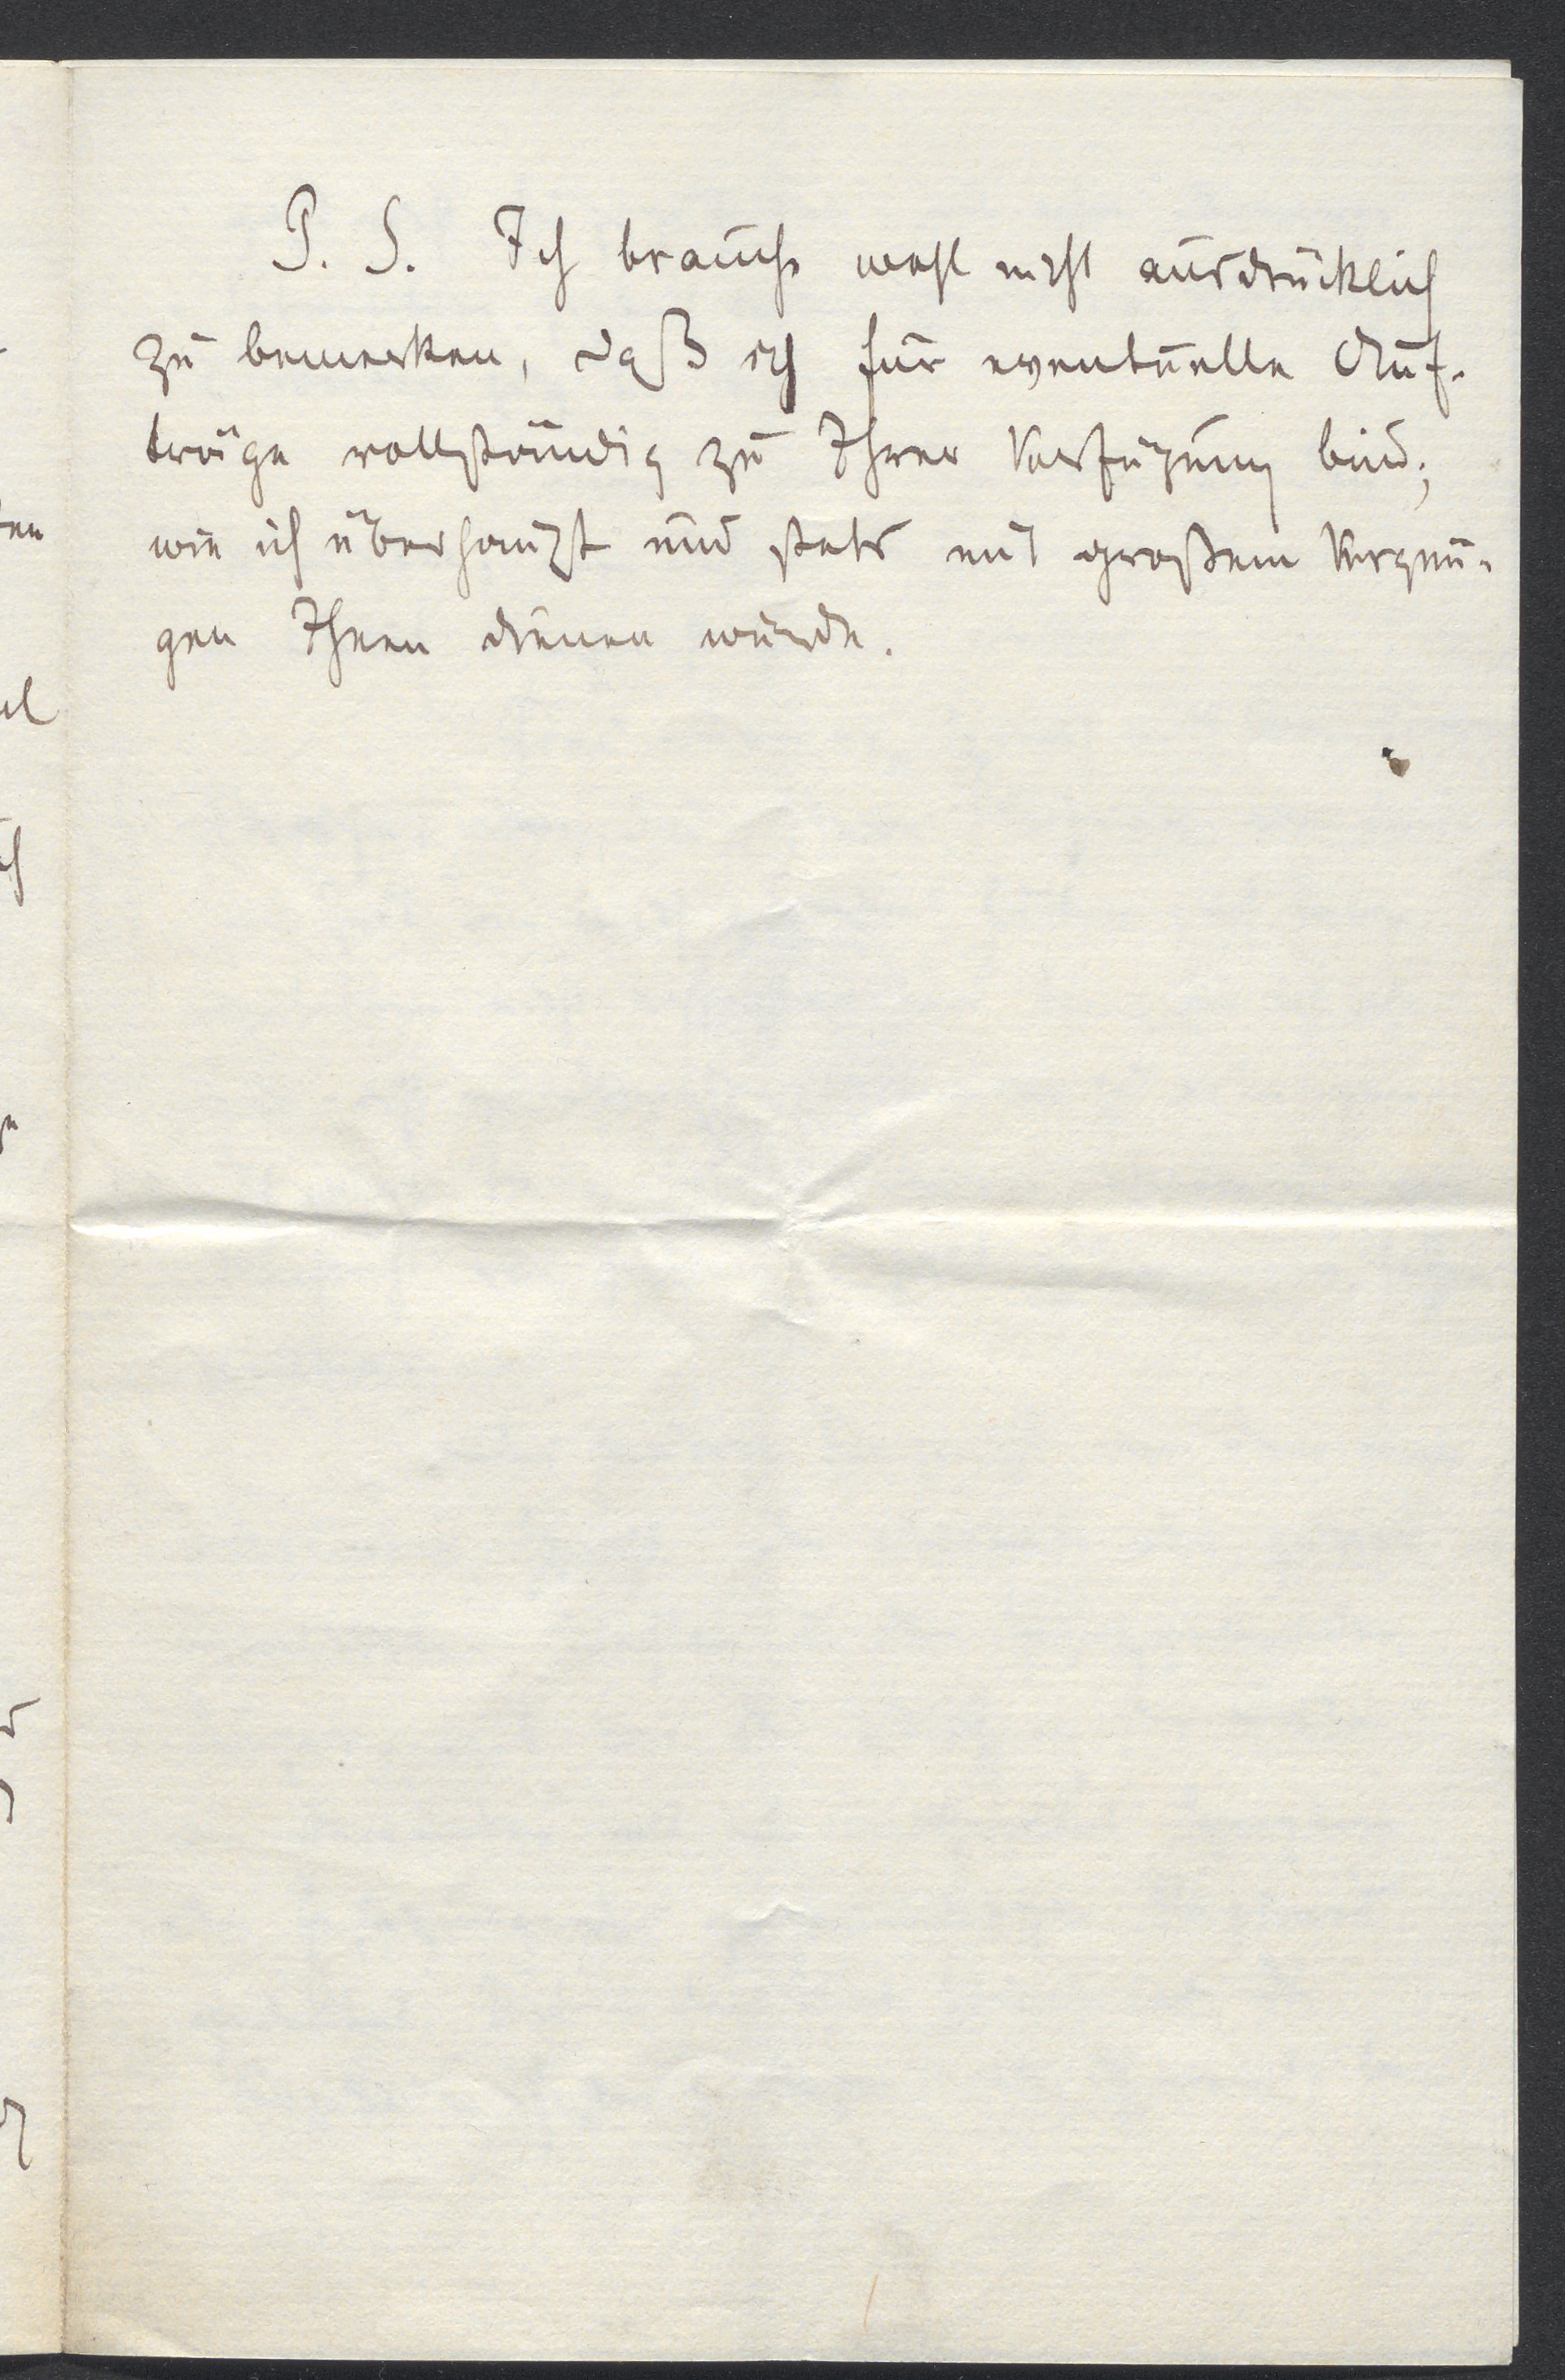 P. S. Ich brauche wohl nicht ausdrücklich
zu bemerken, daß ich für eventuelle Auf-
träge vollständig zu Ihrer Verfügung bin;
wie ich überhaupt und stets mit großem Vergnü-
gen Ihnen dienen würde.